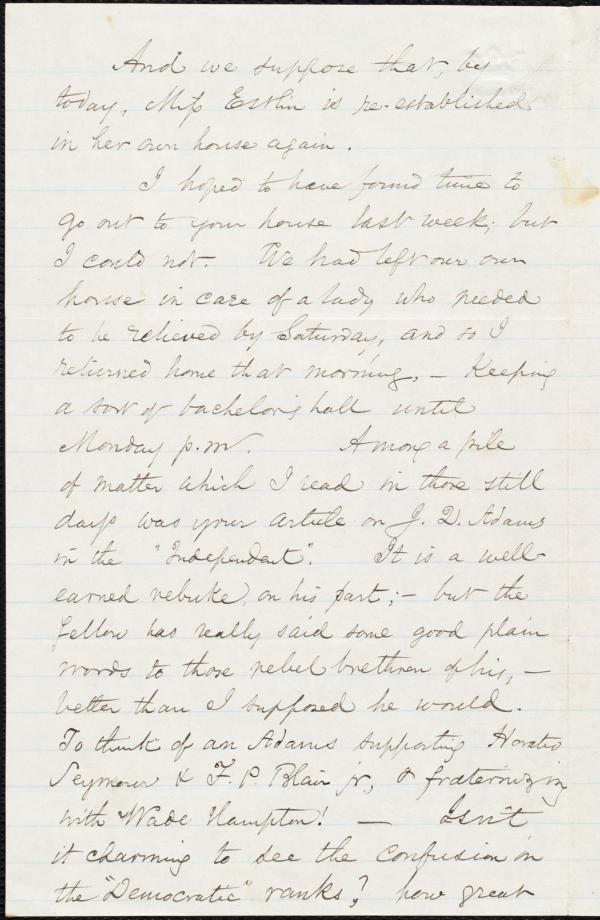 And we suppose that, by
today, Miss Estlin is re-established
in her own house again.
I hoped to have found time to
go out to your house last week; but
I could not. We had left our own
house in care of a lady who needed
to be relieved by Saturday, and so I
returned home that morning, – Keeping
a sort of bachelor's hall until
Monday p.m. Among a pile
of matter which I read in those still
days was your article on J. Q. Adams
in the "Independent". It is a well-
earned rebuke, on his part; – but the
fellow has really said some good plain
words to those rebel brethren of his, –
better than I supposed he would.
To think of an Adams supporting Horatio
Seymour & F. P. Blair jr, & fraternizing
with Wade Hampton! — Isn't
it charming to see the confusion in
the "Democratic" ranks? how great